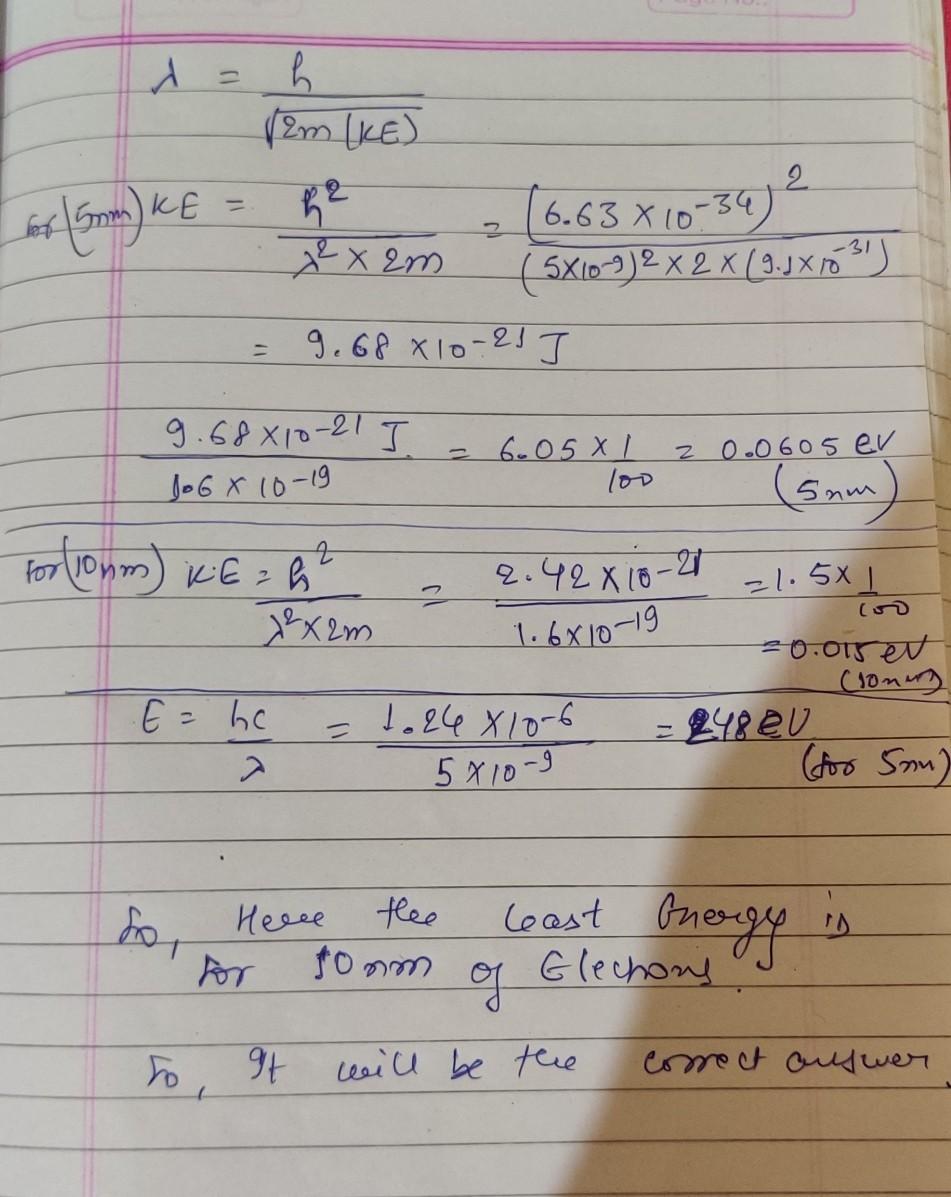 λ = h / √2m (KE)
for (5nm) KE = h² / λ² × 2m = (6.63 × 10⁻³⁴)² / (5×10⁻⁹)² × 2 × (9.1×10⁻³¹)
= 9.68 × 10⁻²¹ J
9.68 × 10⁻²¹ J / 1.6 × 10⁻¹⁹ = 6.05 × 1/100 = 0.0605 ev (5nm)
For (10nm) K.E = h² / λ² × 2m = 2.42 × 10⁻²¹ / 1.6 × 10⁻¹⁹ = 1.5 × 1/100
= 0.015 ev (10nm)
E = hc / λ = 1.24 × 10⁻⁶ / 5 × 10⁻⁹ = 248 eV (for 5nm)
So, Here the least Energy is
For 10nm of Elechons.
So, It will be the correct answer.